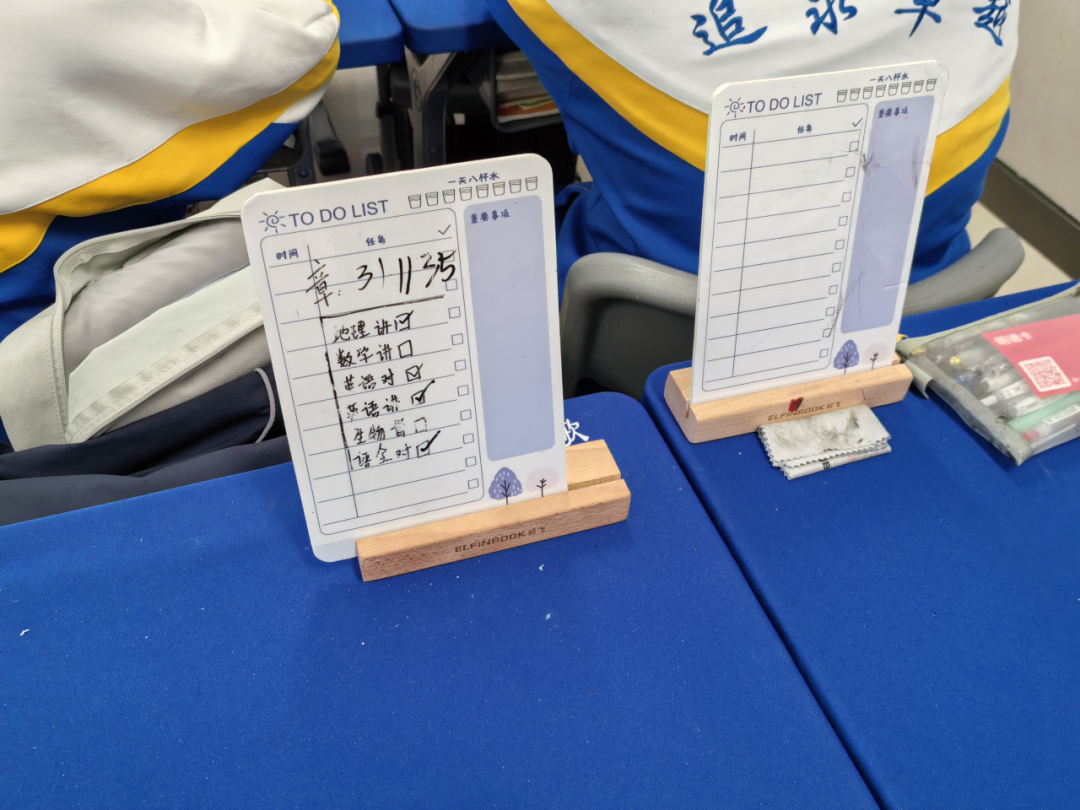 追求卓越
一天八杯水
TO DO LIST
重要事项
时间 任务
章: 311 35
地理 讲
数学 讲
英语 对
英语 讲
生物
语全对
ELFINBOOK
一天八杯水
TO DO LIST
重要事项
时间 任务
ELFINBOOK